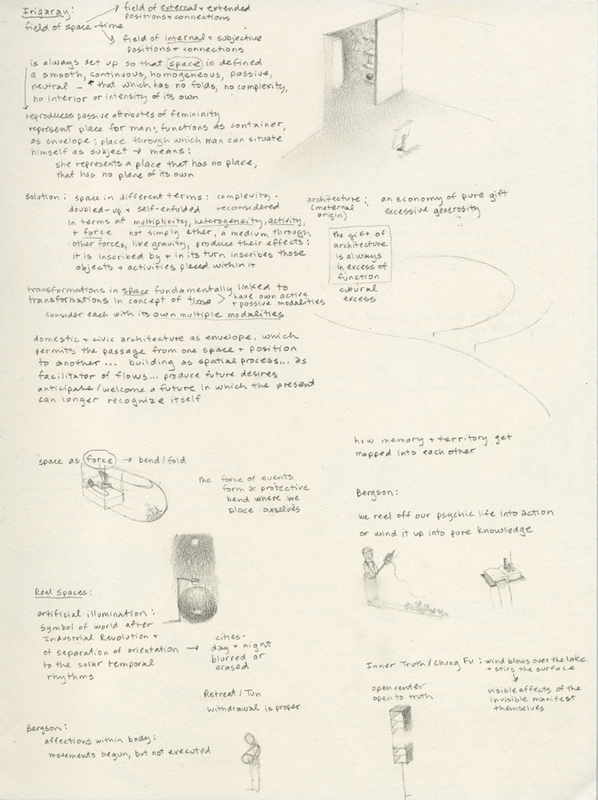 Irigaray:
field of external + extended
positions + connections
field of space-time
field of internal + subjective
positions + connections
is always set up so that space is defined
a smooth, continuous, homogeneous, passive,
neutral - that which has no folds, no complexity,
no interior or intensity of its own
reproduces passive attributes of femininity
represent place for man, functions as container,
as envelope; place through which man can situate
himself as subject → means:
she represents a place that has no place,
that has no place of its own
solution: space in different terms: complexity -
doubled-up + self-enfolded reconsidered
in terms of multiplicity, heterogeneity, activity,
+ force not simply ether, a medium through
other forces, like gravity, produce their effects:
it is inscribed by + in its turn inscribes those
objects + activities placed within it
architecture: an economy of pure gift
(maternal excessive generosity
origin)
the gift of
architecture
is always
in excess of
function
cultural
excess
transformations in space fundamentally linked to
transformations in concept of time > have own active
+ passive modalities
consider each with its own multiple modalities
domestic + civic architecture as envelope, which
permits the passage from one space + position
to another... building as spatial process... as
facilitator of flows... produce future desires
anticipate/welcome a future in which the present
can longer recognize itself
space as force → bend/fold
the force of events
form a protective
bend where we
place ourselves
how memory + territory get
mapped into each other
Bergson:
we reel off our psychic life into action
or wind it up into pure knowledge
Real Spaces:
artificial illumination:
symbol of world after
Industrial Revolution +
of separation of orientation →
to the solar temporal
rhythms
cities -
day + night
blurred or
erased
Retreat / Tun
withdrawal is proper
Inner Truth / Chung Fu: wind blows over the lake
+ stirs the surface
open center
open to truth
visible effects of the
invisible manifest
themselves
Bergson:
affections within body:
movements begun, but not executed